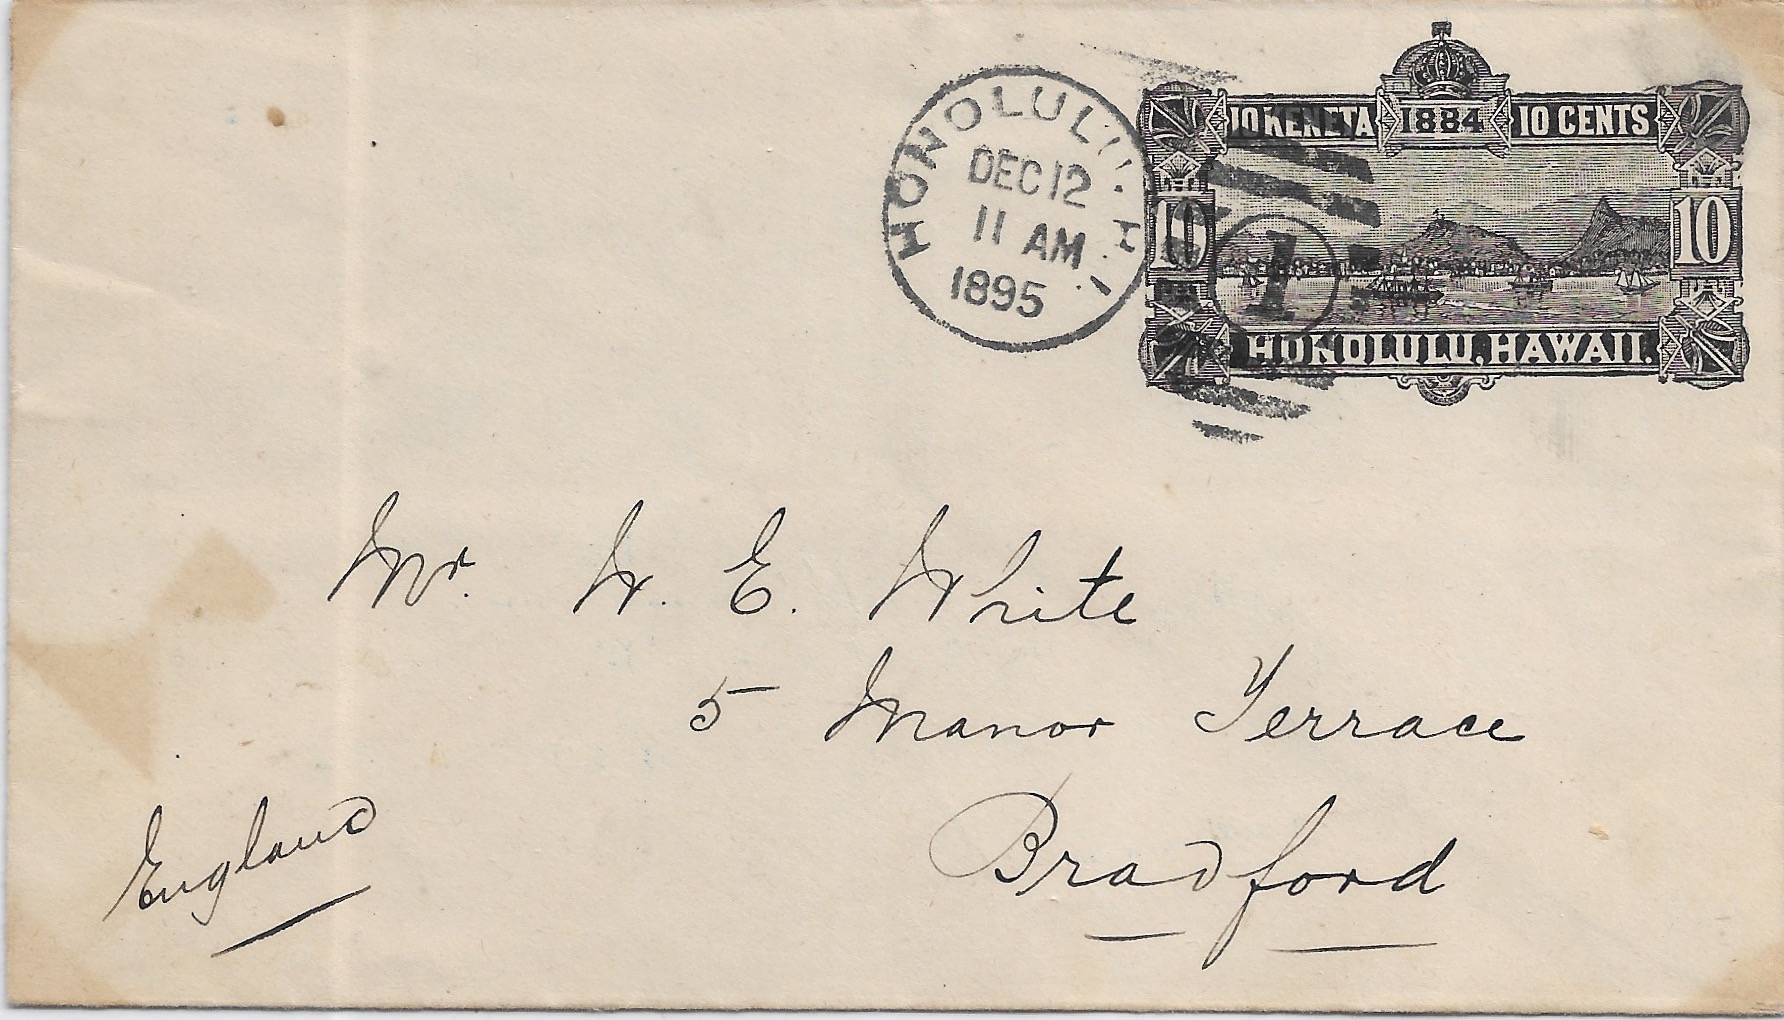 HONOLULU. H. I.
DEC 12
11 AM
1895
10 KENETA 1884 10 CENTS
10 10
1
HONOLULU, HAWAII.
Mr. W. E. White
5 Manor Terrace
Bradford
England